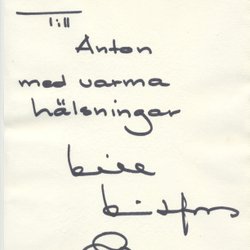 till
Anton
med varma
hälsningar